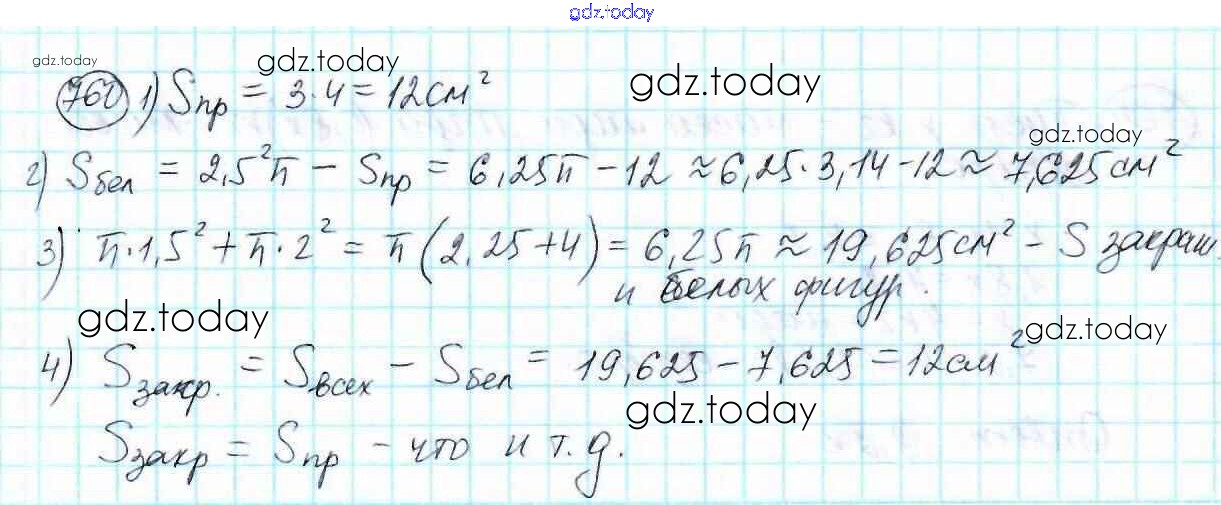 gdz.today
gdz.today gdz.today gdz.today
760 1) Sпр = 3·4 = 12см²
gdz.today
2) Sбел = 2,5²π − Sпр = 6,25π − 12 ≈ 6,25·3,14−12 ≈ 7,625см²
3) π·1,5² + π·2² = π(2,25+4) = 6,25π ≈ 19,625см² − S закраш.
и белых фигур.
gdz.today gdz.today
4) Sзакр. = Sвсех − Sбел = 19,625 − 7,625 = 12см²
gdz.today
Sзакр = Sпр − что и т.д.